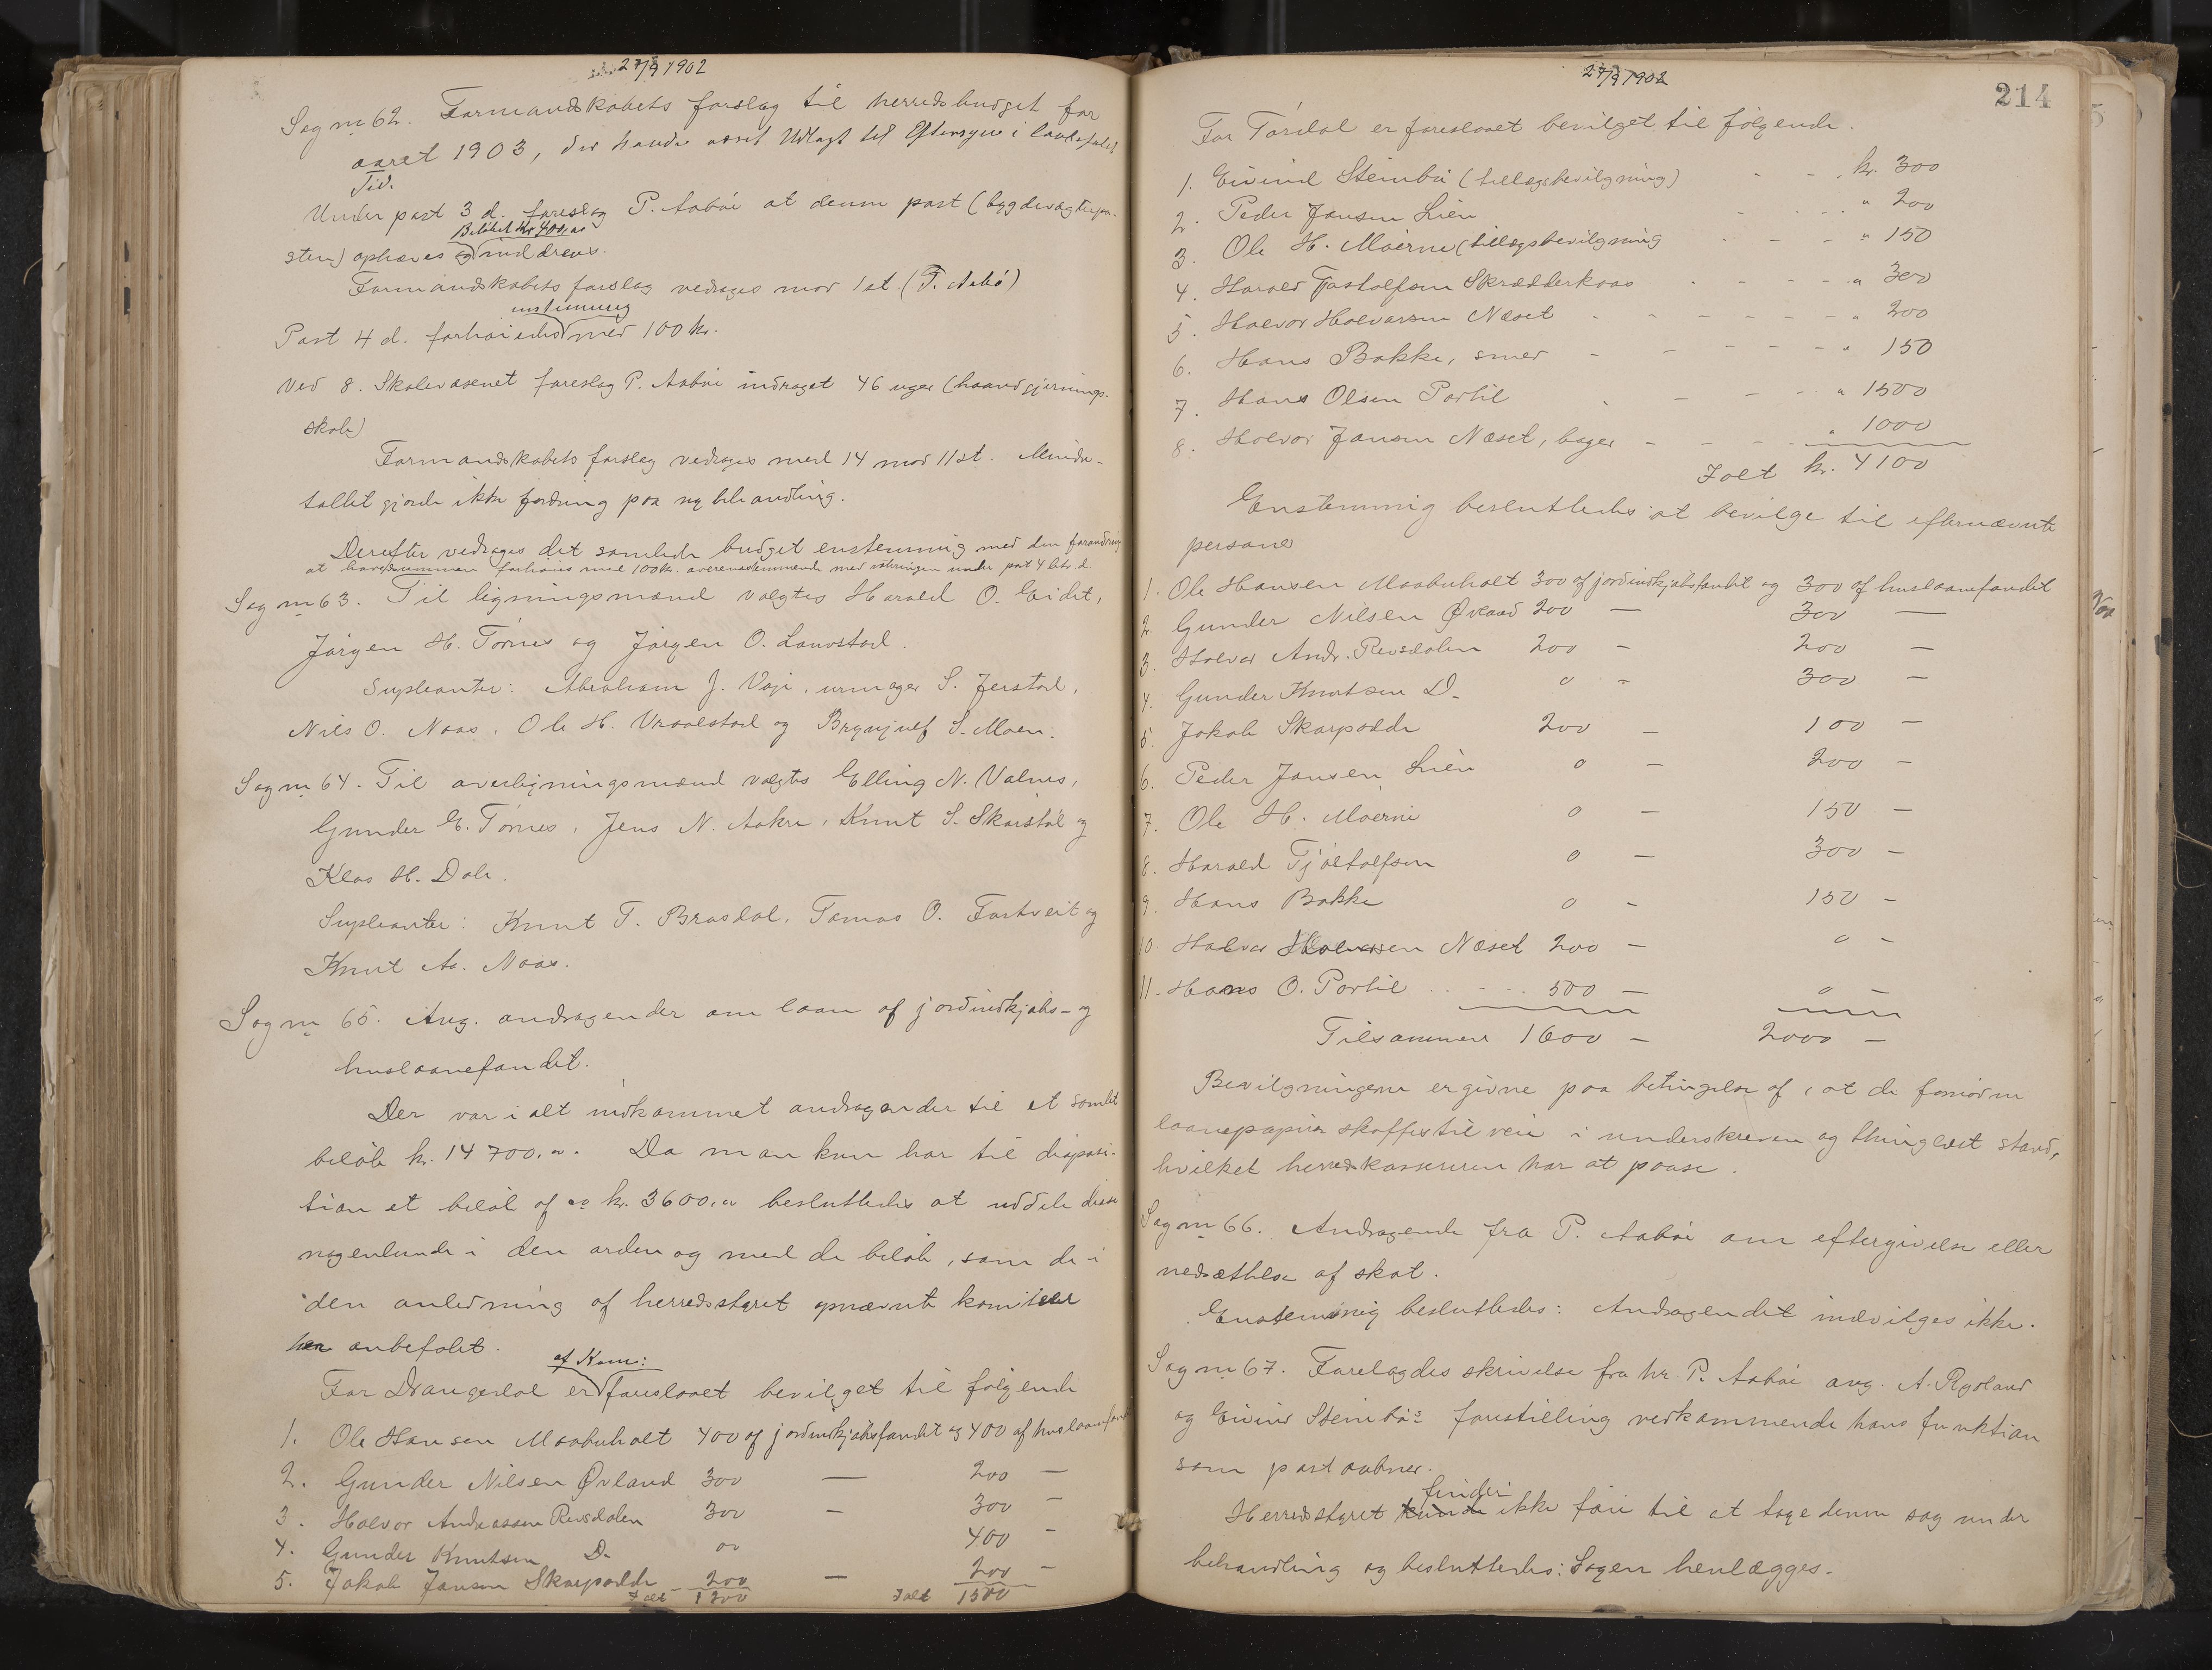 27/9 1902
Sag nr 62. Formandskabets forslag til herredsbudget for
aaret 1903, der havde været Udlagt til Eftersyn i lovbefalet
Tid.
Under post 3 d. foreslog P. Aabøi at denne post (bygdevægterpo-
Beløbet Kr 400,00
sten) ophæves og inddrages.
Formandskabets forslag vedtages mod 1 st. (P. Aabø)
enstemmig
Post 4 d. forhøiedes med 100 kr.
Ved 8. Skolevæsenet foreslog P. Aabøi inddraget 46 uger (haandgjernings-
skole)
Formandskabets forslag vedtages med 14 mod 11 st. Mindre-
tallet gjorde ikke fordring paa ny behandling.
Derefter vedtages det samlede budget enstemmig med den forandring
at hovedsummen forhøies med 100 kr. overensstemmende med økningen under post 4 litr. d.
Sag nr 63. Til ligningsmænd valgtes Harald O. Eidet,
Jørgen H. Tørnes og Jørgen O. Lauvstad.
Supleanter: Abraham J. Voje, urmager S. Jerstad,
Nils O. Naas, Ole H. Vraalstad og Brynjulf S. Moen.
Sag nr 64. Til overligningsmænd valgtes Elling N. Valnes,
Gunder E. Tørnes, Jens N. Aakre, Knut S. Skarstøl og
Klas H. Dale.
Supleanter: Knut T. Brødal, Tomas O. Tostveit og
Knut Aa. Naas.
Sag nr 65. Ang. andragender om laan af jordindkjøbs- og
huslaanefondet.
Der var i alt indkommet andragender til et samlet
beløb kr. 14 700,00. Da man kun har til disposi-
tion et beløb af ca kr. 3600,00 besluttedes at uddele disse
nogenlunde i den orden og med de beløb, som de i
den anledning af herredsstyret opnævnte komiteer
har anbefalet.
af Kom:
For Drangedal er foreslaaet bevilget til følgende
1. Ole Hansen Moobuholt 400 af jordindkjøbsfondet og 400 af huslaanefond
2. Gunder Nilsen Øvland 300 — 200 —
3. Halvor Andreassen Revsdalen 300 — 300 —
4. Gunder Knutsen D. 00 400 —
5. Jakob Jansen Skarpodde 200 — 200 —
Ialt 1200 Ialt 1500
27/9 1902
214
For Tørdal er foreslaaet bevilget til følgende.
1. Eivind Steinbø (tillægsbevilgning) - - kr. 300
2. Peder Jansen Lien - - - " 200
3. Ole H. Moerne (tillægsbevilgning - - - " 150
4. Harald Tjostolfsen Skrædderkaas - - - - " 300
5. Halvor Halvorsen Næset - - - - - - " 200
6. Hans Bakke, smed - - - - - " 150
7. Hans Olsen Portil - - - - " 1500
8. Halvor Jansen Næset, bager - - - - " 1000
Ialt kr. 4100
Enstemmig besluttedes at bevilge til efternævnte
personer
1. Ole Hansen Moobuholt 300 af jordindkjøbsfondet og 300 af huslaanefondet
2. Gunder Nilsen Øvland 200 — 300 —
3. Halvor Andr. Revsdalen 200 — 200 —
4. Gunder Knutsen D. 0 — 300 —
5. Jakob Skarpodde 200 — 100 —
6. Peder Jansen Lien 0 — 200 —
7. Ole H. Moerne 0 — 150 —
8. Harald Tjøstolfsen 0 — 300 —
9. Hans Bakke 0 — 150 —
10. Halvor Halvorsen Næset 200 — 0 —
11. Hans O. Portil . . - . . 500 — 0 —
Tilsammen 1600 — 2000 —
Bevilgningerne er givne paa betingelse af, at de fornødne
laanepapirer skaffes tilveie i underskreven og thinglæst stand,
hvilket herredskassereren har at paase.
Sag nr 66. Andragende fra P. Aabøi om eftergivelse eller
nedsættelse af skat.
Enstemmig besluttedes: Andragendet indvilges ikke.
Sag nr 67. Forelagdes skrivelse fra hr. P. Aabøi ang. A. Rysland
og Eivind Steinbøs forestilling vedkommende hans funktion
som postaabner.
finder
Herredsstyret kunde ikke føie til at tage denne sag under
behandling og besluttedes: Sagen henlægges.